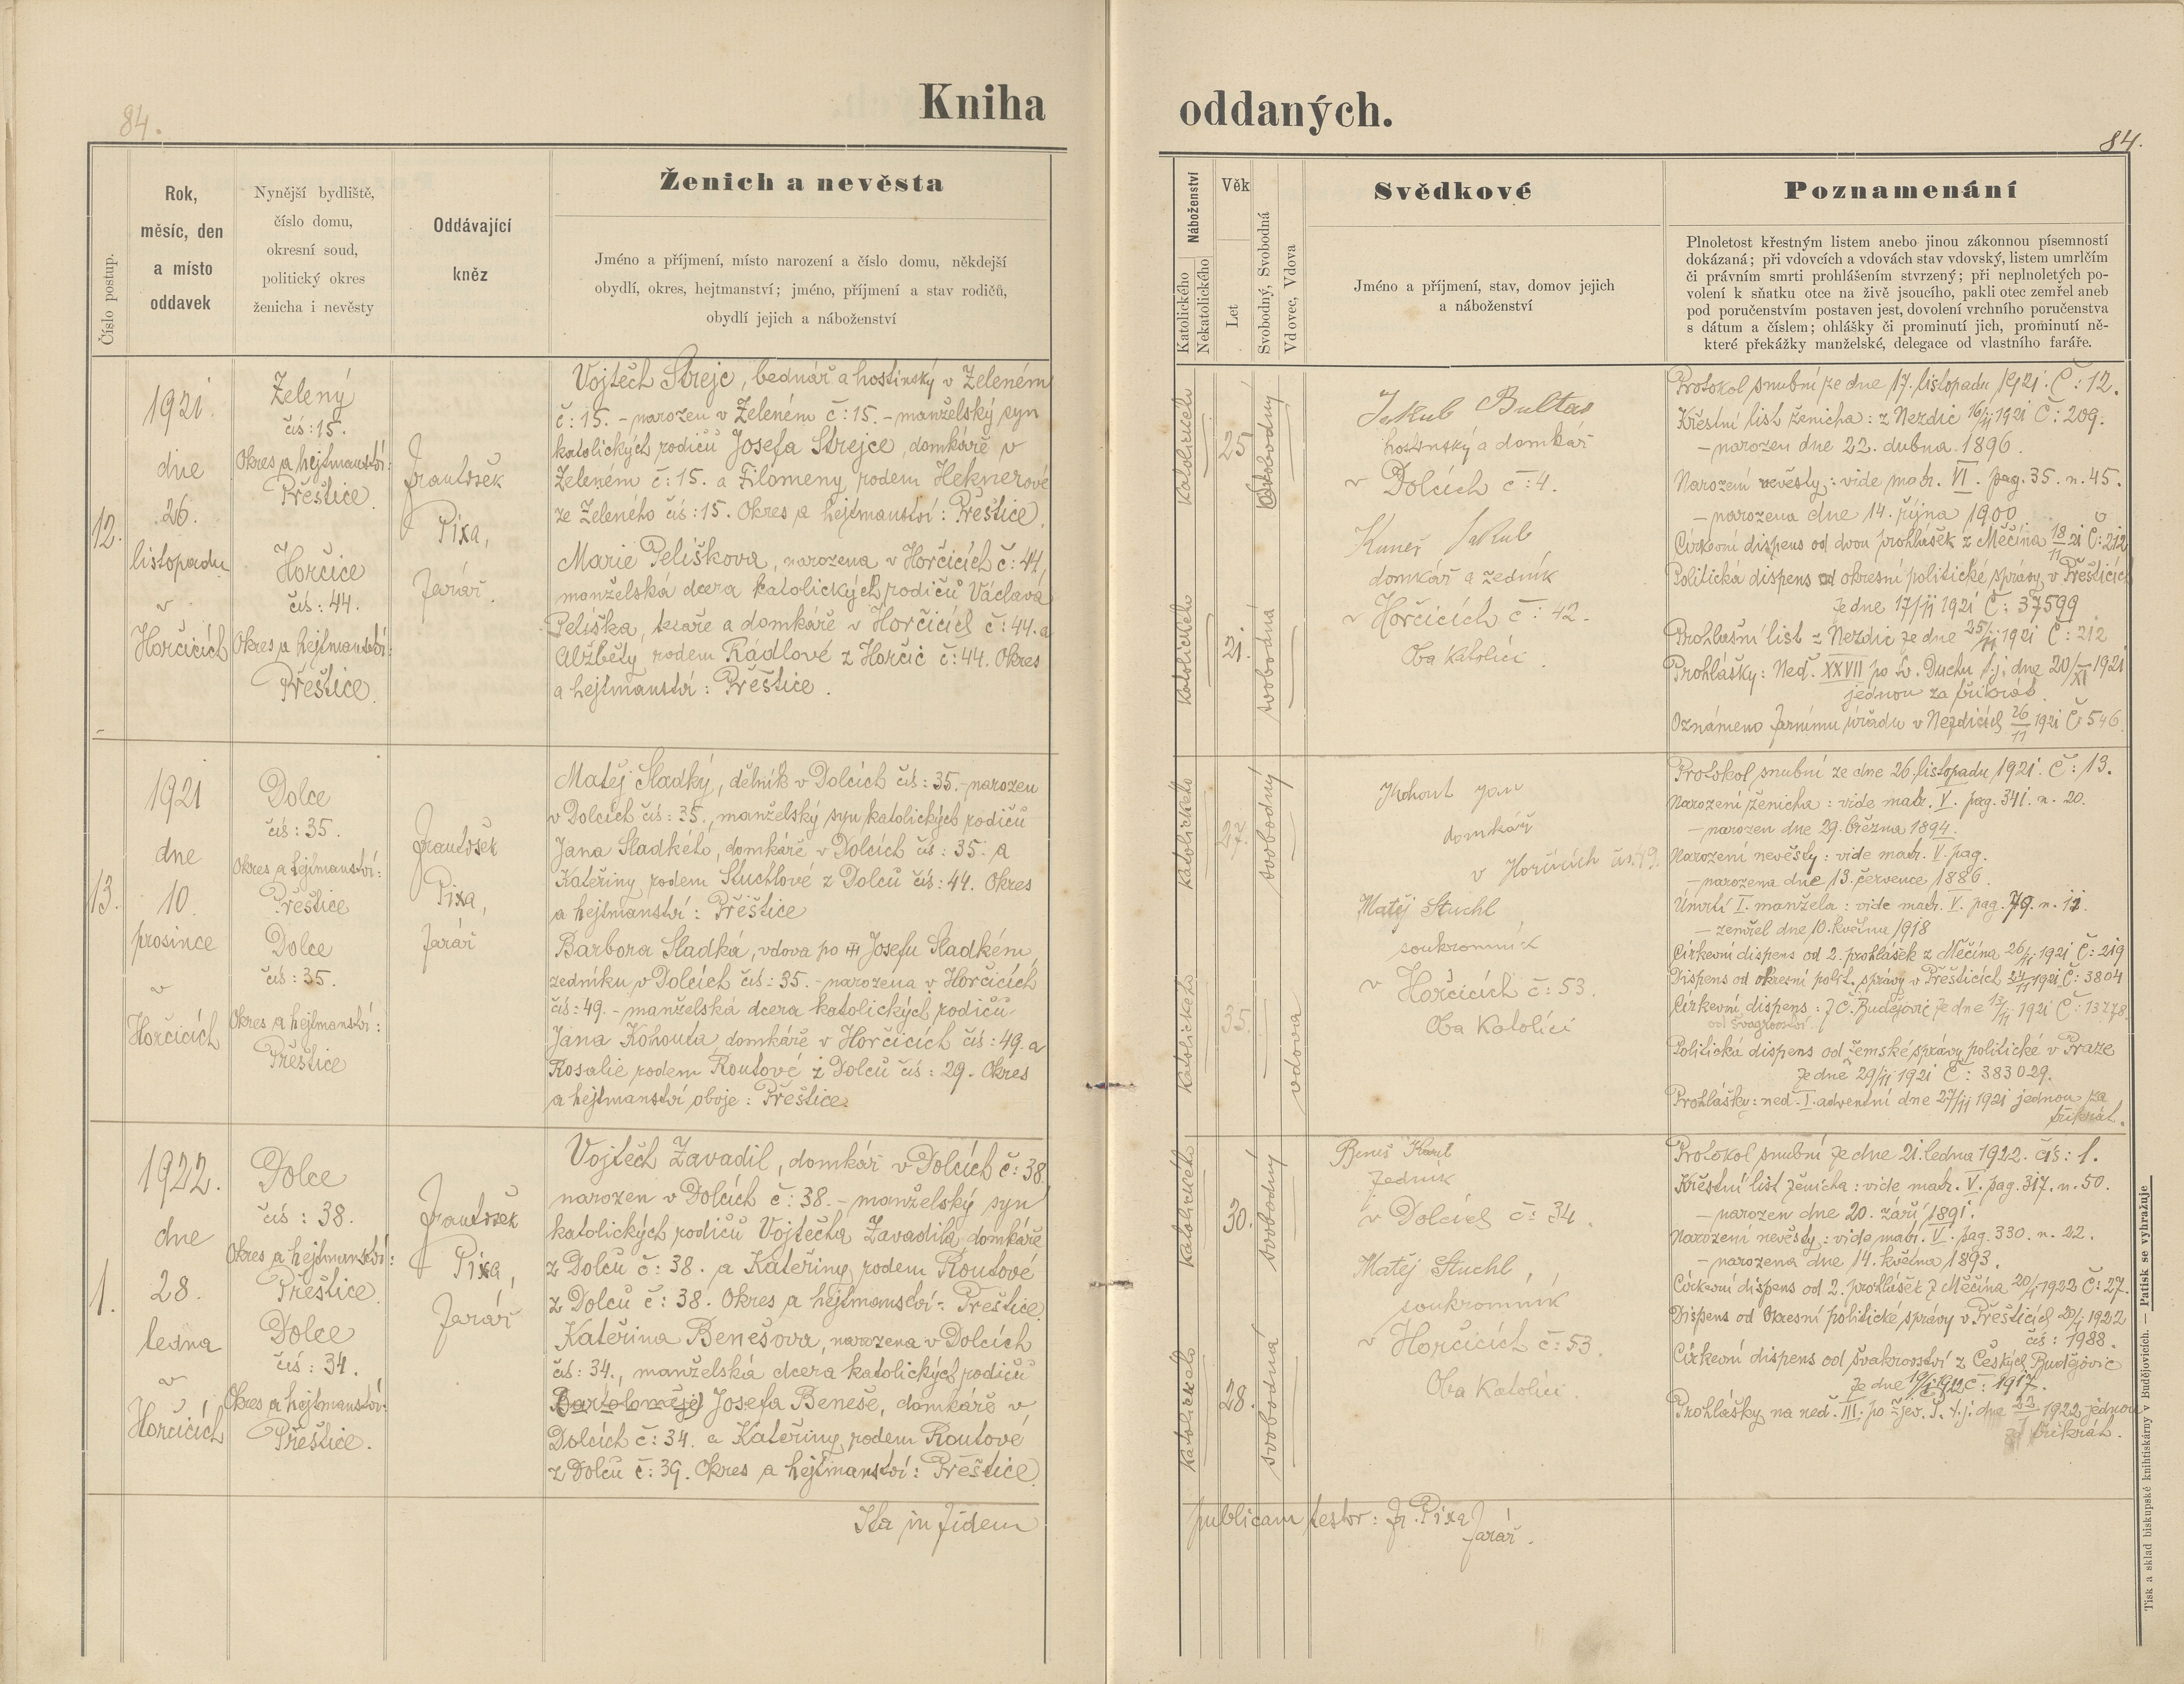 84.
Kniha
oddaných.
84.
Číslo postup.
Rok,
měsíc, den
a místo
oddavek
Nynější bydliště,
číslo domu,
okresní soud,
politický okres
ženicha i nevěsty
Oddávající
kněz
Ženich a nevěsta
Jméno a příjmení, místo narození a číslo domu, někdejší
obydlí, okres, hejtmanství; jméno, příjmení a stav rodičů,
obydlí jejich a náboženství
Náboženství
Katolického
Nekatolického
Věk
Let
Svobodný, Svobodná
Vdovec, Vdova
Svědkové
Jméno a příjmení, stav, domov jejich
a náboženství
Poznamenání
Plnoletost křestným listem anebo jinou zákonnou písemností
dokázaná; při vdovcích a vdovách stav vdovský, listem umrlčím
či právním smrti prohlášením stvrzený; při neplnoletých po-
volení k sňatku otce na živě jsoucího, pakli otec zemřel aneb
pod poručenstvím postaven jest, dovolení vrchního poručenstva
s dátum a číslem; ohlášky či prominutí jich, prominutí ně-
které překážky manželské, delegace od vlastního faráře.
12.
1921.
dne
26.
listopadu
v
Horčicích
Zelený
čís: 15.
Okres a hejtmanství:
Přeštice.
Horčice
čís: 44.
Okres a hejtmanství:
Přeštice.
František
Pixa,
farář.
Vojtěch Strejc, bednář a hostinský v Zeleném
č: 15. - narozen v Zeleném č: 15. - manželský syn
katolických rodičů Josefa Strejce, domkáře v
Zeleném č: 15. a Filomeny rodem Heknerové
ze Zeleného čís: 15. Okres a hejtmanství: Přeštice.
Marie Pelíškova, narozena v Horčicích č: 44,
manželská dcera katolických rodičů Václava
Pelíška, tesaře a domkáře v Horčicích č: 44. a
Alžběty rodem Rádlové z Horčic č: 44. Okres
a hejtmanství: Přeštice.
katolického
25
svobodný
katolického
21.
svobodná
Jakub Bultas
hostinský a domkář
v Dolcích č: 4.
Kuneš Jakub
domkář a zedník
v Horčicích č: 42.
Oba katolíci.
Protokol snubní ze dne 17. listopadu 1921. Č: 12.
Křestní list ženicha: z Nezdic 16/11 1921 Č: 209.
- narozen dne 22. dubna 1896.
Narození nevěsty: vide matr. VI. pag. 35. n. 45.
- narozena dne 14. října 1900
Církevní dispens od dvou prohlášek z Měčína 18/11 21 Č: 212
Politická dispens od okresní politické správy v Přešticích
ze dne 17/11 1921 Č: 37599
Prohlašní list z Nezdic ze dne 25/11 1921 Č: 212
Prohlášky: Neď. XXVII po Sv. Duchu t.j. dne 20/XI 1921
jednou za třikrát.
Oznámeno farnímu úřadu v Nezdicích 26/11 1921 Č 546
13.
1921
dne
10.
prosince
v
Horčicích
Dolce
čís: 35.
Okres a hejtmanství:
Přeštice
Dolce
čís: 35.
Okres a hejtmanství:
Přeštice
František
Pixa,
farář
Matěj Sladký, dělník v Dolcích čís: 35. - narozen
v Dolcích čís: 35., manželský syn katolických rodičů
Jana Sladkého, domkáře v Dolcích čís: 35. a
Kateřiny rodem Stuchlové z Dolců čís: 44. Okres
a hejtmanství: Přeštice
Barbora Sladká, vdova po Josefu Sladkém,
zedníku v Dolcích čís: 35. - narozena v Horčicích
čís: 49. - manželská dcera katolických rodičů
Jana Kohouta, domkáře v Horčicích čís: 49. a
Rosalie rodem Routové z Dolců čís: 29. Okres
a hejtmanství oboje: Přeštice.
katolického
27.
svobodný
katolického
35.
vdova
Kohout Jan
domkář
v Horčicích čís. 49.
Matěj Stuchl
soukromník
v Horčicích č: 53.
Oba Katolíci
Protokol snubní ze dne 26. listopadu 1921. Č: 13.
Narození ženicha: vide matr. V. pag. 341. n. 20.
- narozen dne 29. března 1894.
Narození nevěsty: vide matr. V. pag.
- narozena dne 13. července 1886.
Úmrtí I. manžela: vide matr. V. pag. 79. n. 11.
- zemřel dne 10. května 1918
Církevní dispens od 2. prohlášek z Měčína 26/11 1921 Č: 219
Dispens od okresní polit. správy v Přešticích 24/11 1921 Č: 3804
Církevní dispens: z Č. Budějovic ze dne 13/11 1921 Č: 13278.
od švagrovství
Politická dispens od zemské správy politické v Praze
ze dne 29/11 1921 Č: 383029.
Prohlášky: neď. I. adventní dne 27/11 1921 jednou za
třikrát.
1.
1922.
dne
28.
ledna
v
Horčicích
Dolce
čís: 38.
Okres a hejtmanství:
Přeštice.
Dolce
čís: 34.
Okres a hejtmanství:
Přeštice.
František
Pixa,
farář
Vojtěch Zavadil, domkář v Dolcích č: 38
narozen v Dolcích č: 38. - manželský syn
katolických rodičů Vojtěcha Zavadila, domkáře
z Dolců č: 38. a Kateřiny rodem Routové
z Dolců č: 38. Okres a hejtmanství: Přeštice.
Kateřina Benešova, narozena v Dolcích
čís: 34., manželská dcera katolických rodičů
(Bartoloměje) Josefa Beneše, domkáře v
Dolcích č: 34. a Kateřiny rodem Routové
z Dolců č: 39. Okres a hejtmanství: Přeštice.
katolického
30.
svobodný
katolického
28.
svobodná
Beneš Karel
zedník
v Dolcích č: 34.
Matěj Stuchl,
soukromník
v Horčicích č: 53.
Oba Katolíci.
Protokol snubní ze dne 21. ledna 1922. čís: 1.
Křestní list ženicha: vide matr. V. pag. 317. n. 50.
- narozen dne 20. září 1891.
Narození nevěsty: vide matr. V. pag. 330. n. 22.
- narozena dne 14. května 1893.
Církevní dispens od 2. prohlášek z Měčína 20/1 1922 Č: 27.
Dispens od Okresní politické správy v Přešticích 20/1 1922
čís: 1988.
Církevní dispens od švakrovství z Českých Budějovic
ze dne 19/1 1922 č: 1917.
Prohlášky na neď. III. po Zjev. P. t.j. dne 22/1 1922 jednou
za třikrát.
Ita in fidem
publicam testor: Fr. Pixa
farář.
Tisk a sklad biskupské knihtiskárny v Budějovicích. — Patisk se vyhražuje